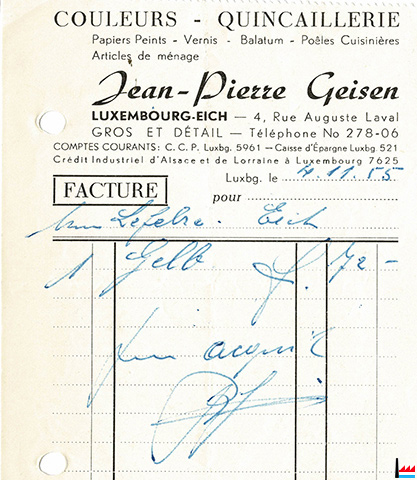 COULEURS - QUINCAILLERIE
Papiers Peints - Vernis - Balatum - Poêles Cuisinières
Articles de ménage
Jean-Pierre Geisen
LUXEMBOURG-EICH — 4, Rue Auguste Laval
GROS ET DÉTAIL — Téléphone No 278-06
COMPTES COURANTS: C. C. P. Luxbg. 5961 — Caisse d'Épargne Luxbg. 521
Crédit Industriel d'Alsace et de Lorraine à Luxembourg 7625
Luxbg. le 4.11.55
FACTURE pour
Lefebre. Eich
1 Gelb 72 -
acquit